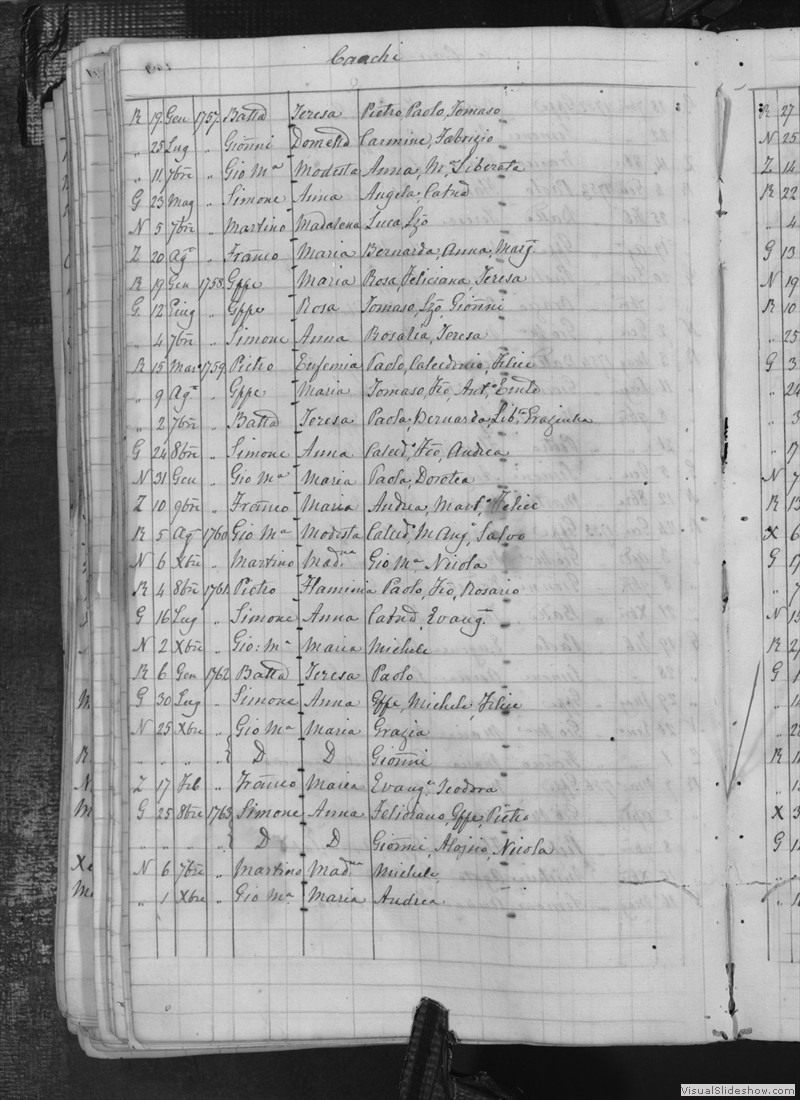 Caachi
R 19 Gen 1757 Batta Teresa Pietro, Paolo, Tomaso
" 25 Lug " Gionni Dometta Carmine, Fabrizio
" 11 7bre " Gio Ma Modesta Anna, Ma Liberata
G 23 Mag " Simone Anna Angela, Catnd
N 5 7bre " Martino Madalena Luca, Lzo
Z 20 Ago " Franco Maria Bernarda, Anna, Marg
R 19 Gen 1758 Gppe Maria Rosa, Feliciana, Teresa
G 12 Giug " Gppe Rosa Tomaso, Lzo, Gionni
" 4 7bre " Simone Anna Rosalia, Teresa
R 15 Mar 1759 Pietro Eufemia Paolo, Calcedonio, Felice
" 9 Ago " Gppe Maria Tomaso, Fco, Anto
" 2 7bre " Batta Teresa Paola, Bernarda, Liba
G 24 8bre " Simone Anna Calcedo, Fco, Andrea
N 31 Gen " Gio Ma Maria Paola, Dorotea
Z 10 9bre " Franco Maria Andrea, Felice
R 5 Ago 1760 Gio Ma Modesta Salvo
N 6 Xbre " Martino Madna Gio Ma Nicola
R 4 8bre 1761 Pietro Flaminia Paolo, Fco, Rosario
G 16 Lug " Simone Anna Catnd, Evang
N 2 Xbre " Gio: Ma Maria Michele
R 6 Gen 1762 Batta Teresa Paolo
G 30 Lug " Simone Anna Gppe, Michele, Felice
N 25 Xbre " Gio Ma Maria Grazia
" " " " D D Gionni
Z 17 Feb " Franco Maria Evanga Teodora
G 25 8bre 1763 Simone Anna Feliciano, Gppe, Pietro
" " " " D D Gionni, Alojsio, Nicola
N 6 7bre " Martino Madna Michele
" 1 Xbre " Gio Ma Maria Andrea
VisualSlideshow.com